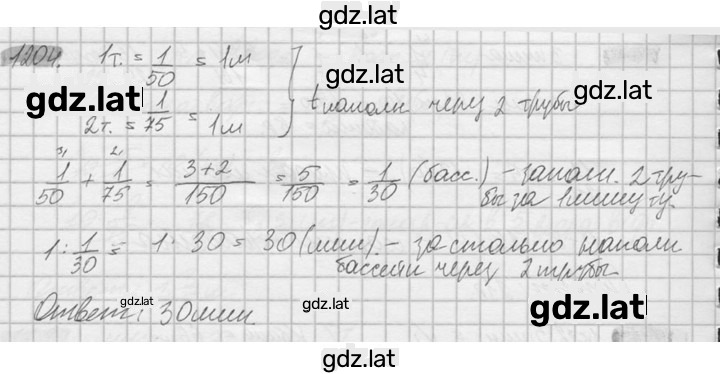 gdz.lat
1204. 1т. = 1/50 = 1м
gdz.lat
gdz.lat
gdz.lat
tнаполн через 2 трубы
2т. = 1/75 = 1м
1/50 + 1/75 = 3+2/150 = 5/150 = 1/30 (басс.) - заполн. 2 тру-
бы за 1 минуту.
1 : 1/30 = 1 · 30 = 30 (мин). - за столько наполн
бассейн через 2 трубы
gdz.lat
gdz.lat
gdz.lat
Ответ: 30 мин.
gdz.lat